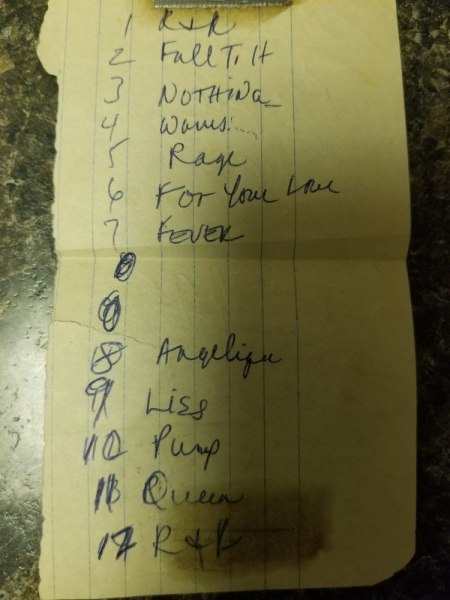 1 R&R
2 Full Tilt
3 NOTHING
4 Waves
5 Rage
6 FOR Your Love
7 FEVER
8 Angelique
9 Lies
10 Pump
11 Queen
12 R&R